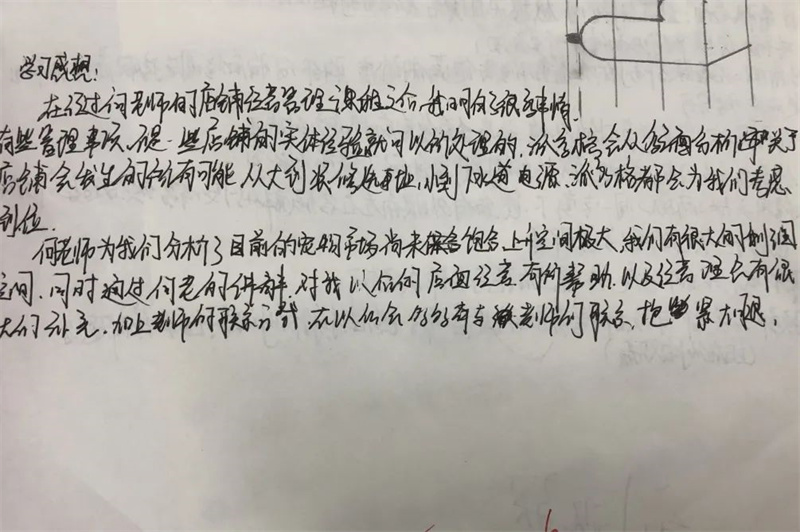 学习感想:
在经过何老师的店铺经营管理课程之后,我明白了很多事情!
有些管理事项,不是一些店铺的实体经验就可以的处理的,派多格会从多个方面分析
店铺会发生的所有可能,从大到装修选址,小到下水道电源,派多格都会为我们考虑
到位.
何老师为我们分析了目前的宠物市场尚未饱合,上升空间极大,我们有很大的利润
空间.同时通过何老师的讲解,对我以后的店面经营有所帮助,以及经营理念有很
大的补充.加上老师的联系方式,在以后会多多与老师的联系,抱紧大腿.